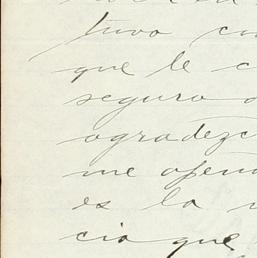 tuvo co
que le c
seguro d
agradezc
me ofen
es la
cia que